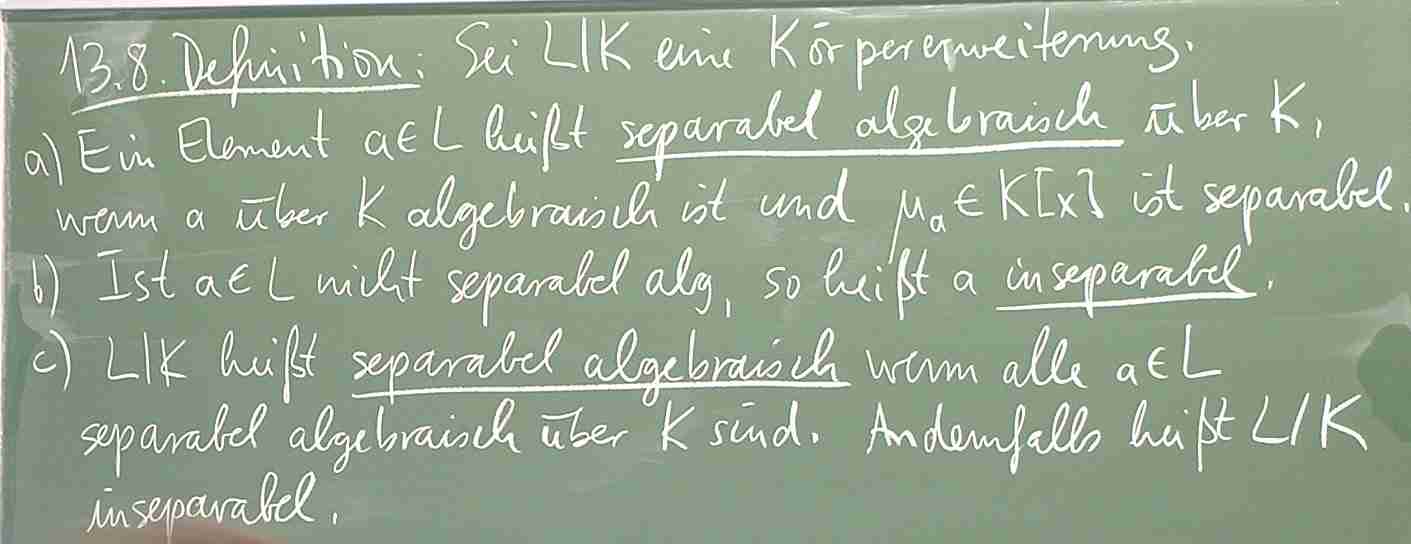 13.8. Definition: Sei L|K eine Körpererweiterung.
a) Ein Element a∈L heißt separabel algebraisch über K,
wenn a über K algebraisch ist und μₐ ∈ K[x] ist separabel.
b) Ist a∈L nicht separabel alg, so heißt a inseparabel.
c) L|K heißt separabel algebraisch wenn alle a∈L
separabel algebraisch über K sind. Andernfalls heißt L/K
inseparabel.